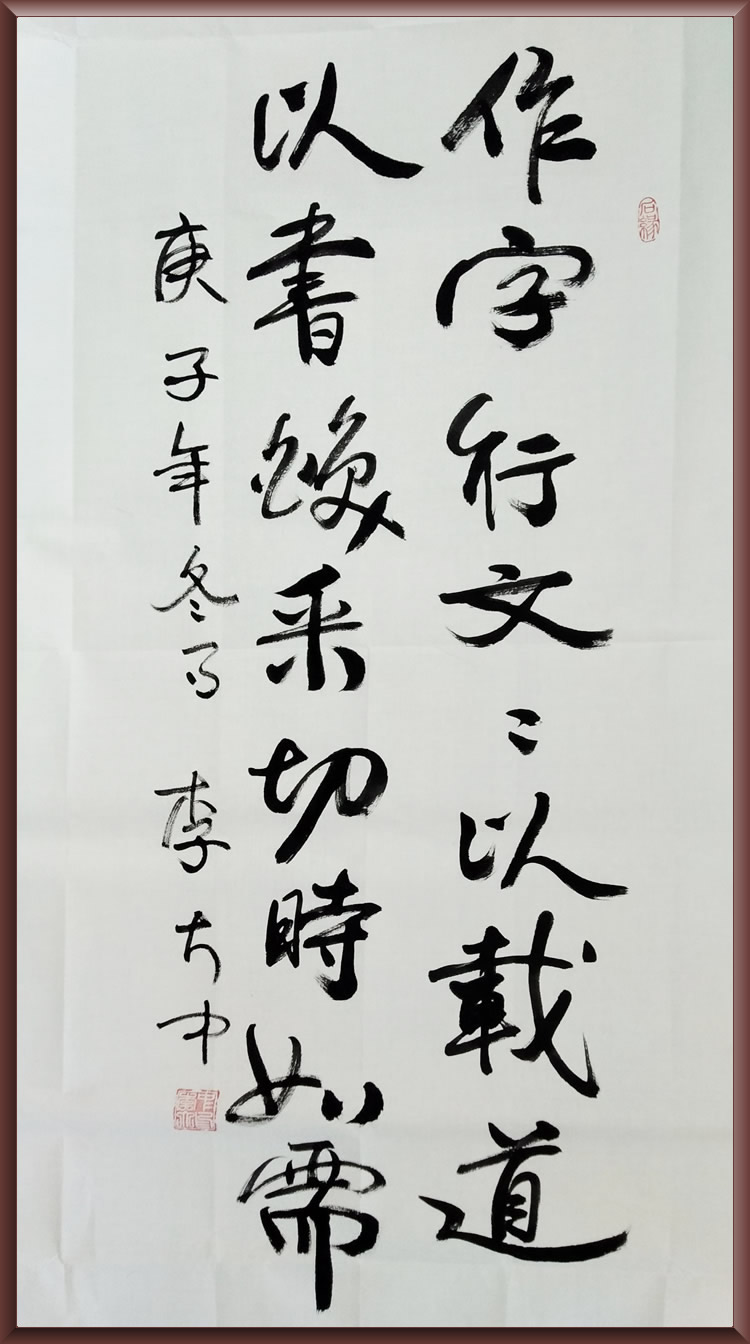 作字行文〻以載道
以書煥采切時如需
庚子年冬月 李大中